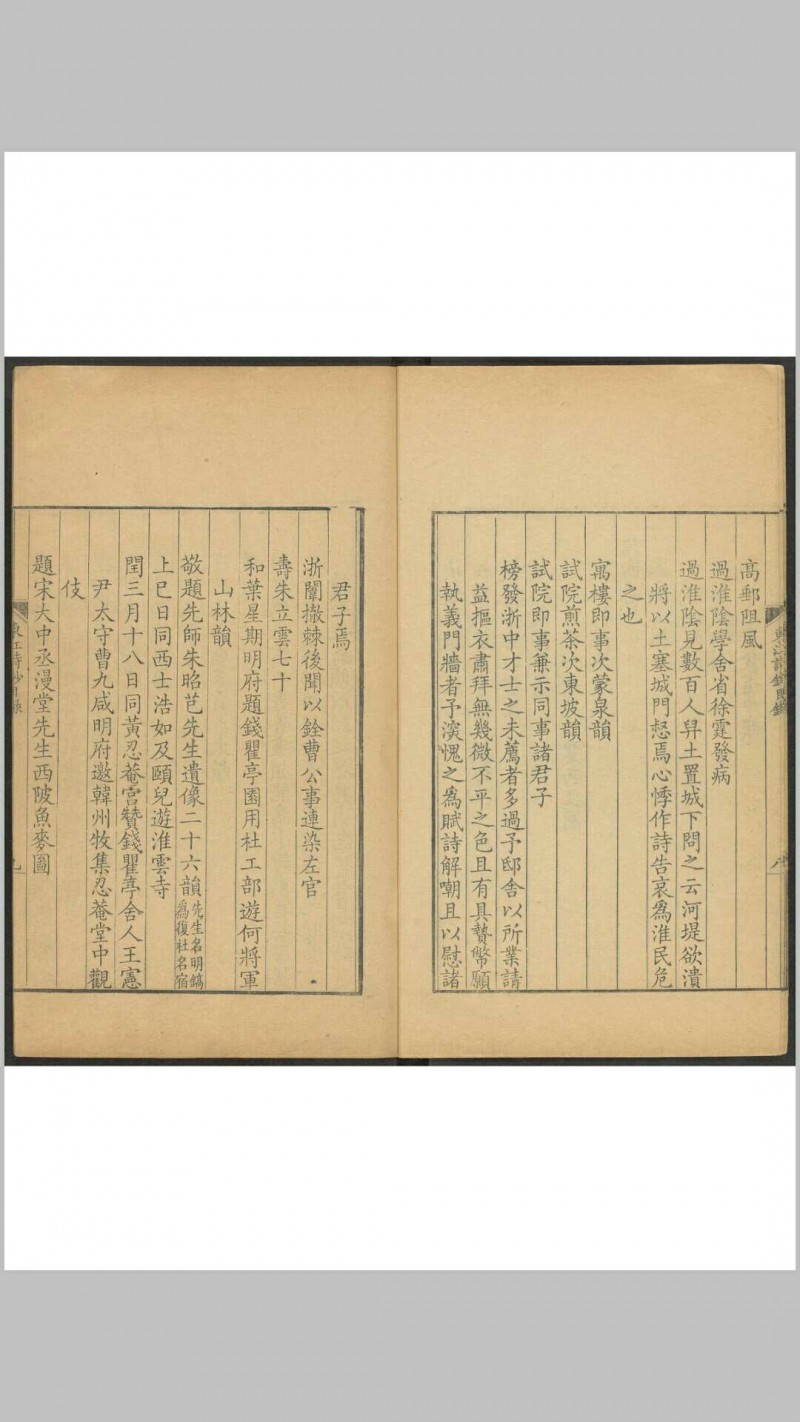 東江詩鈔目錄
八
高郵阻風
過淮陰學舍省徐霆發病
過淮陰見數百人舁土置城下問之云河堤欲潰
將以土塞城門怒焉心悸作詩告哀爲淮民危
之也
寓樓即事次蒙泉韻
試院煎茶次東坡韻
試院即事兼示同事諸君子
榜發浙中才士之未薦者多過予邸舍以所業請
益摳衣肅拜無幾微不平之色且有具贄幣願
執義門牆者予深愧之爲賦詩解嘲且以慰諸
君子焉
浙闈撤棘後聞以銓曹公事連染左官
壽朱立雲七十
和葉星期明府題錢瞿亭園用杜工部遊何將軍
山林韻
敬題先師朱昭芑先生遺像二十六韻先生名明鎬爲復社名宿
上巳日同西士浩如及頤兒遊淮雲寺
閏三月十八日同黃忍菴宮贊錢瞿亭舍人王憲
尹太守曹九咸明府邀韓州牧集忍菴堂中觀
伎
題宋大中丞漫堂先生西陂魚麥圖
東江詩鈔目錄
九